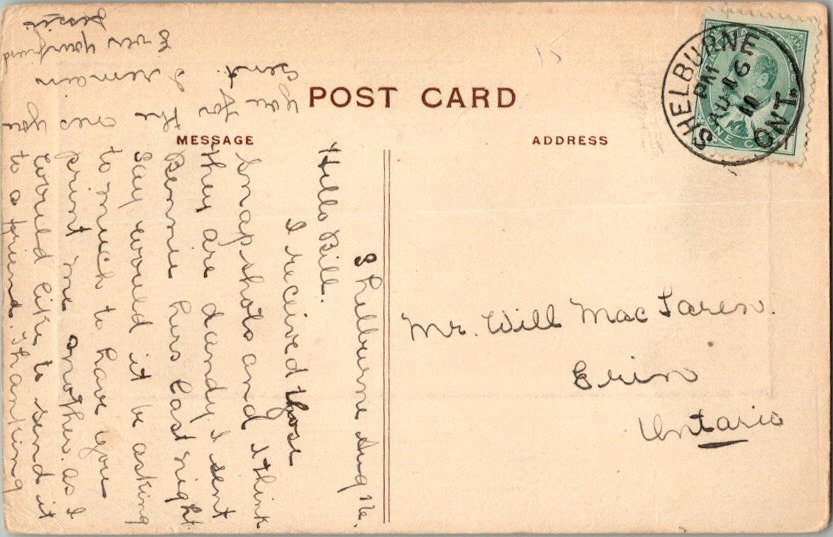 POST CARD
MESSAGE
ADDRESS
SHELBURNE
PM
AU 16
10
ONT.
ONE
15
Mr. Will MacLaren.
Erin
Ontario
Shelburne Aug 16.
Hello Bill.
I received those
snapshots and I think
they are dandy I sent
Bennie hers last night.
Say would it be asking
to much to have you
print me another. as I
would like to send it
to a friend Thanking
you for the ones you
sent.
I remain
Ever your friend
Jessie